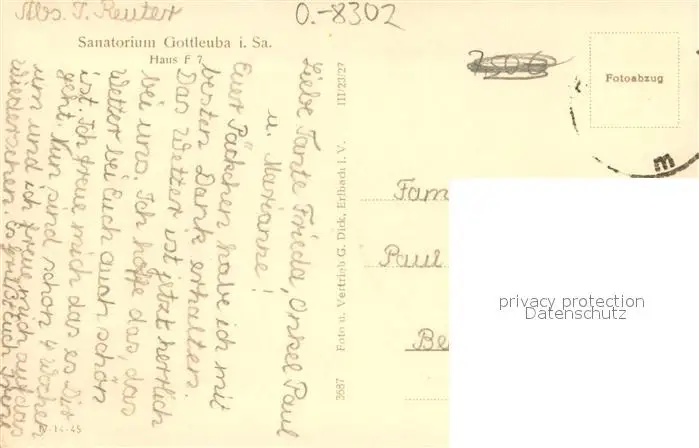 Abs. I. Reuter
O.-8302
Sanatorium Gottleuba i. Sa.
Haus F 7
Fotoabzug
m
Liebe Tante Frieda, Onkel Paul
u. Marianne!
Euer Päckchen habe ich mit
besten Dank erhalten.
Das Wetter ist jetzt herrlich
bei uns. Ich hoffe das, das
Wetter bei Euch auch schön
ist. Ich freue mich das es Dir
geht. Nun sind schon 4 Wochen
um und ich freue mich auf das
wiedersehen. Es grüßt Euch Irene
IV-14-45
3687 Foto u. Vertrieb G. Dick, Erlbach i. V. III/23/27
Fam
Paul
Be
privacy protection
Datenschutz